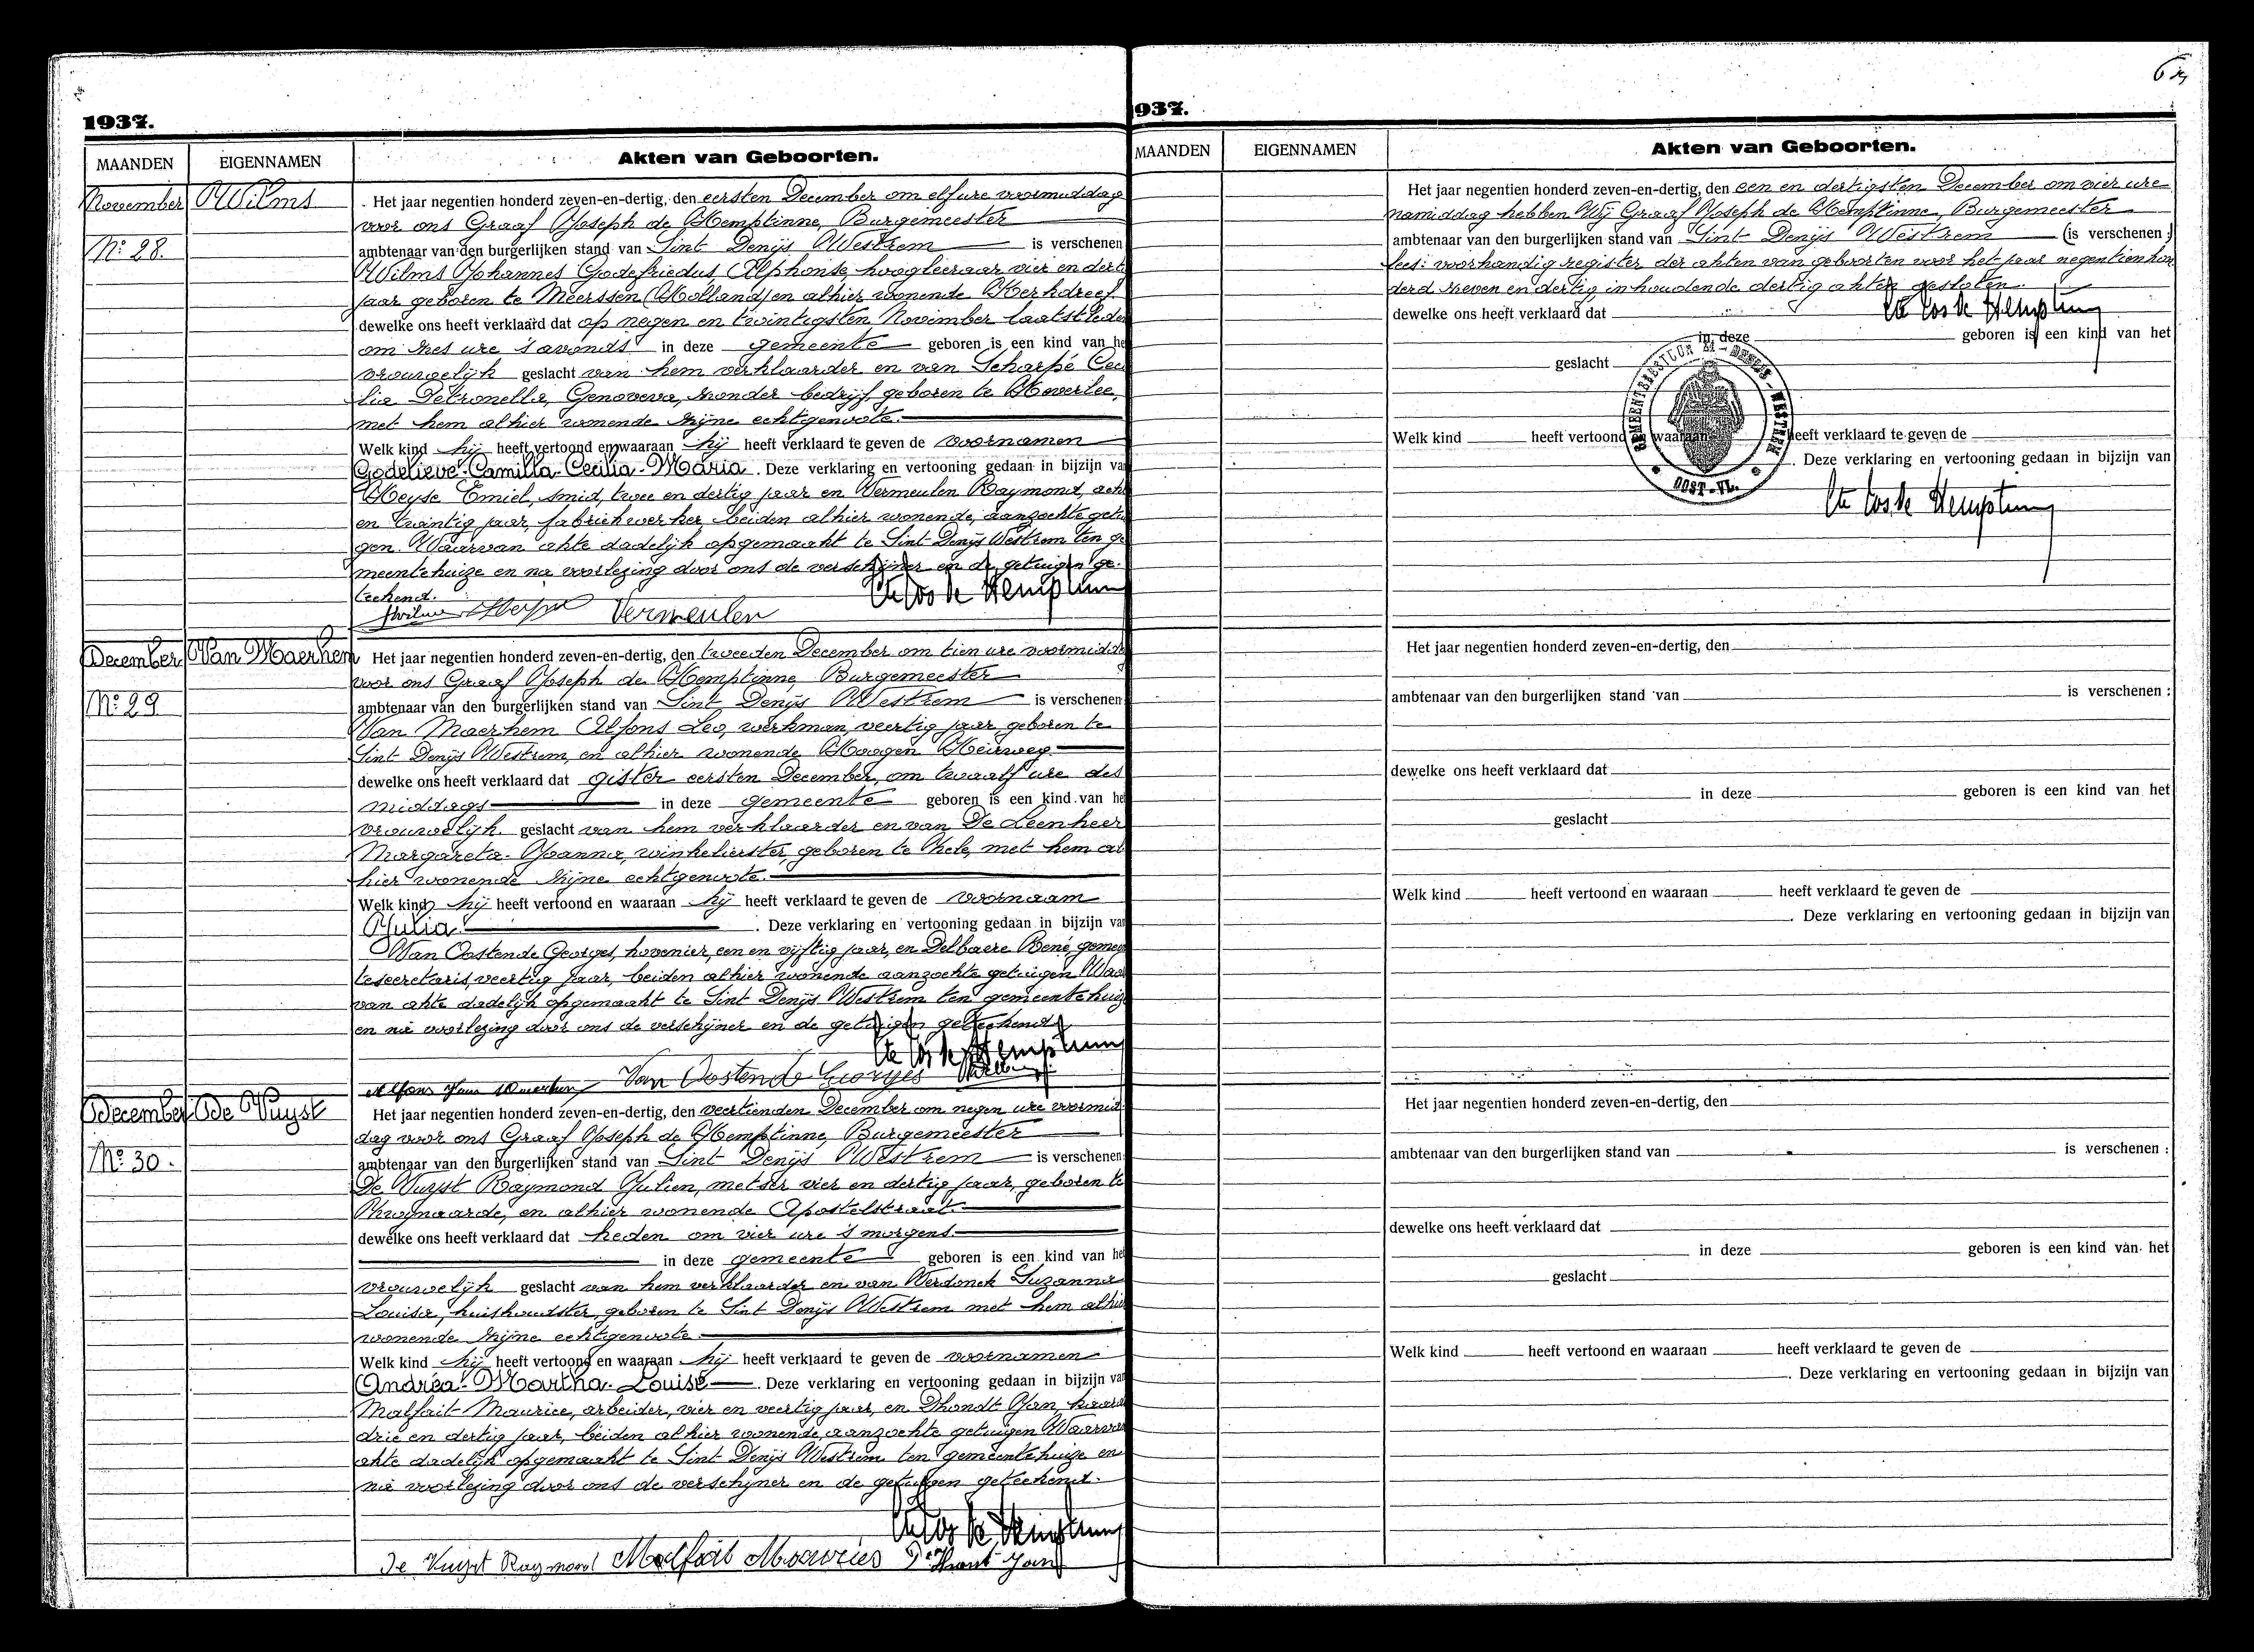 1937.
MAANDEN EIGENNAMEN Akten van Geboorten.
November Wilms
Nº 28.
Het jaar negentien honderd zeven-en-dertig, den eersten December om elf ure voormiddag
voor ons Graaf Joseph de Hemptinne, Burgemeester
ambtenaar van den burgerlijken stand van Sint Denijs Westrem is verschenen
Wilms Johannes Godefriedus Alphonse, hoogleeraar vier en dert
jaar geboren te Meerssen (Holland) en alhier wonende Kerkdreef.
dewelke ons heeft verklaard dat op negen en twintigsten November laatstleden
om zes ure 's avonds in deze gemeente geboren is een kind van he
vrouwelijk geslacht van hem verklaarder en van Scharpé Ceci
lia Petronella, Genoveva, zonder bedrijf, geboren te Heverlee,
met hem alhier wonende zijne echtgenoote.
Welk kind hij heeft vertoond en waaraan hij heeft verklaard te geven de voornamen
Godelieve-Camilla-Cecilia-Maria. Deze verklaring en vertooning gedaan in bijzijn van
Heyse Emiel, smid, twee en dertig jaar en Vermeulen Raymond, acht
en twintig jaar, fabriekwerker, beiden alhier wonende, aanzochte getu
gen. Waarvan akte dadelijk opgemaakt te Sint Denijs Westrem ten ge
meentehuize en na voorlezing door ons de verschijner en de getuigen ge-
teekend.
Vermeulen
December Van Maerhem
Nº 29
Het jaar negentien honderd zeven-en-dertig, den tweeden December om tien ure voormidda
voor ons Graaf Joseph de Hemptinne, Burgemeester
ambtenaar van den burgerlijken stand van Sint Denijs Westrem is verschenen
Van Maerhem Alfons Leo, werkman, veertig jaar, geboren te
Sint Denijs Westrem, en alhier wonende Hoogen Heirweg.
dewelke ons heeft verklaard dat gister eersten December, om twaalf ure des
middags in deze gemeente geboren is een kind van he
vrouwelijk geslacht van hem verklaarder en van De Leenheer
Margareta-Joanna, winkelierster, geboren te Okele, met hem al
hier wonende zijne echtgenoote.
Welk kind hij heeft vertoond en waaraan hij heeft verklaard te geven de voornaam
Julia. Deze verklaring en vertooning gedaan in bijzijn van
Van Oostende Georges, hovenier, een en vijftig jaar, en Delbaere René, gemee
tesecretaris, veertig jaar, beiden alhier wonende aanzochte getuigen Waar
van akte dadelijk opgemaakt te Sint Denijs Westrem ten gemeentehuize
en na voorlezing door ons de verschijner en de getuigen geteekend
Van Oostende Georges
December De Vuyst
Nº 30.
Het jaar negentien honderd zeven-en-dertig, den veertienden December om negen ure voormid
dag voor ons Graaf Joseph de Hemptinne, Burgemeester
ambtenaar van den burgerlijken stand van Sint Denijs Westrem is verschenen
De Vuyst Raymond Julien, metser vier en dertig jaar, geboren te
Zwijnaarde, en alhier wonende Apostelstraat.
dewelke ons heeft verklaard dat heden om vier ure 's morgens
in deze gemeente geboren is een kind van het
vrouwelijk geslacht van hem verklaarder en van Verdonck Suzanna
Louisa, huishoudster, geboren te Sint Denijs Westrem met hem alhier
wonende zijne echtgenoote.
Welk kind hij heeft vertoond en waaraan hij heeft verklaard te geven de voornamen
Andréa-Martha-Louise. Deze verklaring en vertooning gedaan in bijzijn van
Malfait Maurice, arbeider, vier en veertig jaar, en Dhondt Jan,
drie en dertig jaar, beiden alhier wonende, aanzochte getuigen Waarvan
akte dadelijk opgemaakt te Sint Denijs Westrem ten gemeentehuize en
na voorlezing door ons de verschijner en de getuigen geteekend.
De Vuyst Raymond Malfait Mauries D'Hont Jan
937.
MAANDEN EIGENNAMEN Akten van Geboorten.
Het jaar negentien honderd zeven-en-dertig, den een en dertigsten December om vier ure
namiddag hebben Wij Graaf Joseph de Hemptinne, Burgemeester
ambtenaar van den burgerlijken stand van Sint Denijs Westrem (is verschenen;
lees: voorhandig register der akten van geboorten voor het jaar negentienhon
derd zeven en dertig, inhoudende dertig akten gesloten.
dewelke ons heeft verklaard dat
in deze geboren is een kind van het
geslacht
GEMEENTEBESTUUR St-DENIJS-WESTREM
OOST-VL.
Welk kind heeft vertoond en waaraan heeft verklaard te geven de
. Deze verklaring en vertooning gedaan in bijzijn van
Het jaar negentien honderd zeven-en-dertig, den
ambtenaar van den burgerlijken stand van is verschenen :
dewelke ons heeft verklaard dat
in deze geboren is een kind van het
geslacht
Welk kind heeft vertoond en waaraan heeft verklaard te geven de
. Deze verklaring en vertooning gedaan in bijzijn van
Het jaar negentien honderd zeven-en-dertig, den
ambtenaar van den burgerlijken stand van is verschenen :
dewelke ons heeft verklaard dat
in deze geboren is een kind van het
geslacht
Welk kind heeft vertoond en waaraan heeft verklaard te geven de
. Deze verklaring en vertooning gedaan in bijzijn van